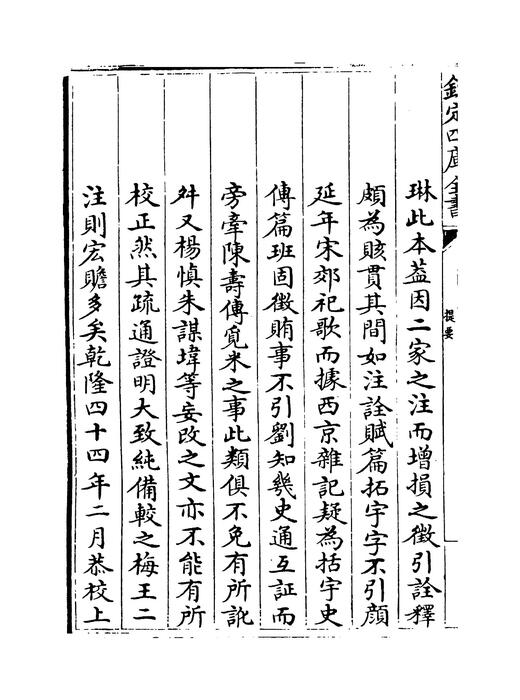 欽定四庫全書
提要
琳此本蓋因二家之注而增損之徵引詮釋
頗為賅貫其間如注詮賦篇拓宇字不引顔
延年宋郊祀歌而據西京雜記疑為括宇史
傳篇班固徵賄事不引劉知幾史通互証而
旁牽陳壽傳覓米之事此類俱不免有所訛
舛又楊慎朱謀㙔等妄改之文亦不能有所
校正然其疏通證明大致純備較之梅王二
注則宏贍多矣乾隆四十四年二月恭校上